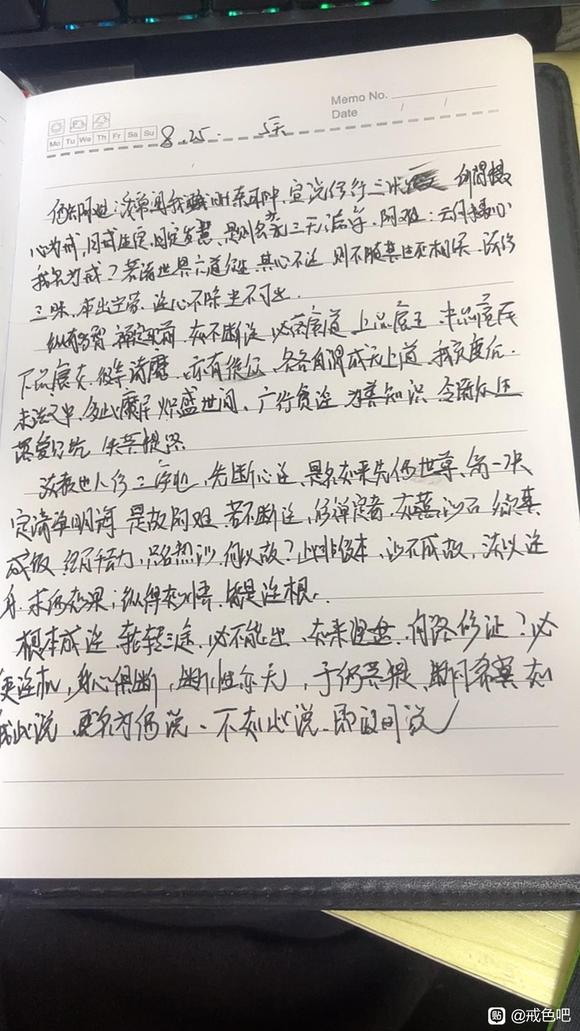 Memo No.
Mo Tu We Th Fr Sa Su
Date / /
8.25. 5天
佛告阿难:汝常闻我毗奈耶中,宣说修行三决 所谓摄
心为戒,因戒生定,因定发慧,是则名为三无漏学,阿难:云何摄心
我名为戒?若诸世界六道众生 其心不淫 则不随其生死相续 汝修
三昧,本出尘劳,淫心不除 尘不可出
纵有多智 禅定现前 如不断淫 必落魔道 上品魔王 中品魔民
下品魔女,彼等诸魔,亦有徒众,各各自谓成无上道,我灭度后,
末法之中,多此魔民 炽盛世间,广行贪淫 为善知识 令诸众生
落爱见坑 失菩提路
汝教世人修三摩地,先断心淫,是名如来先佛世尊,第一决
定清净明诲 是故阿难 若不断淫,修禅定者,如蒸沙石 欲其
成饭 经百千劫,只名热沙 何以故?此非饭本,沙石成故,汝以淫
身,求佛妙果,纵得妙悟,皆是淫根,
根本成淫 轮转三途,必不能出,如来涅盘,何路修证?必
使淫机,身心俱断,断性亦无,于佛菩提,斯可希冀 如
我此说,名为佛说、不如此说、即波旬说
贴 @戒色吧